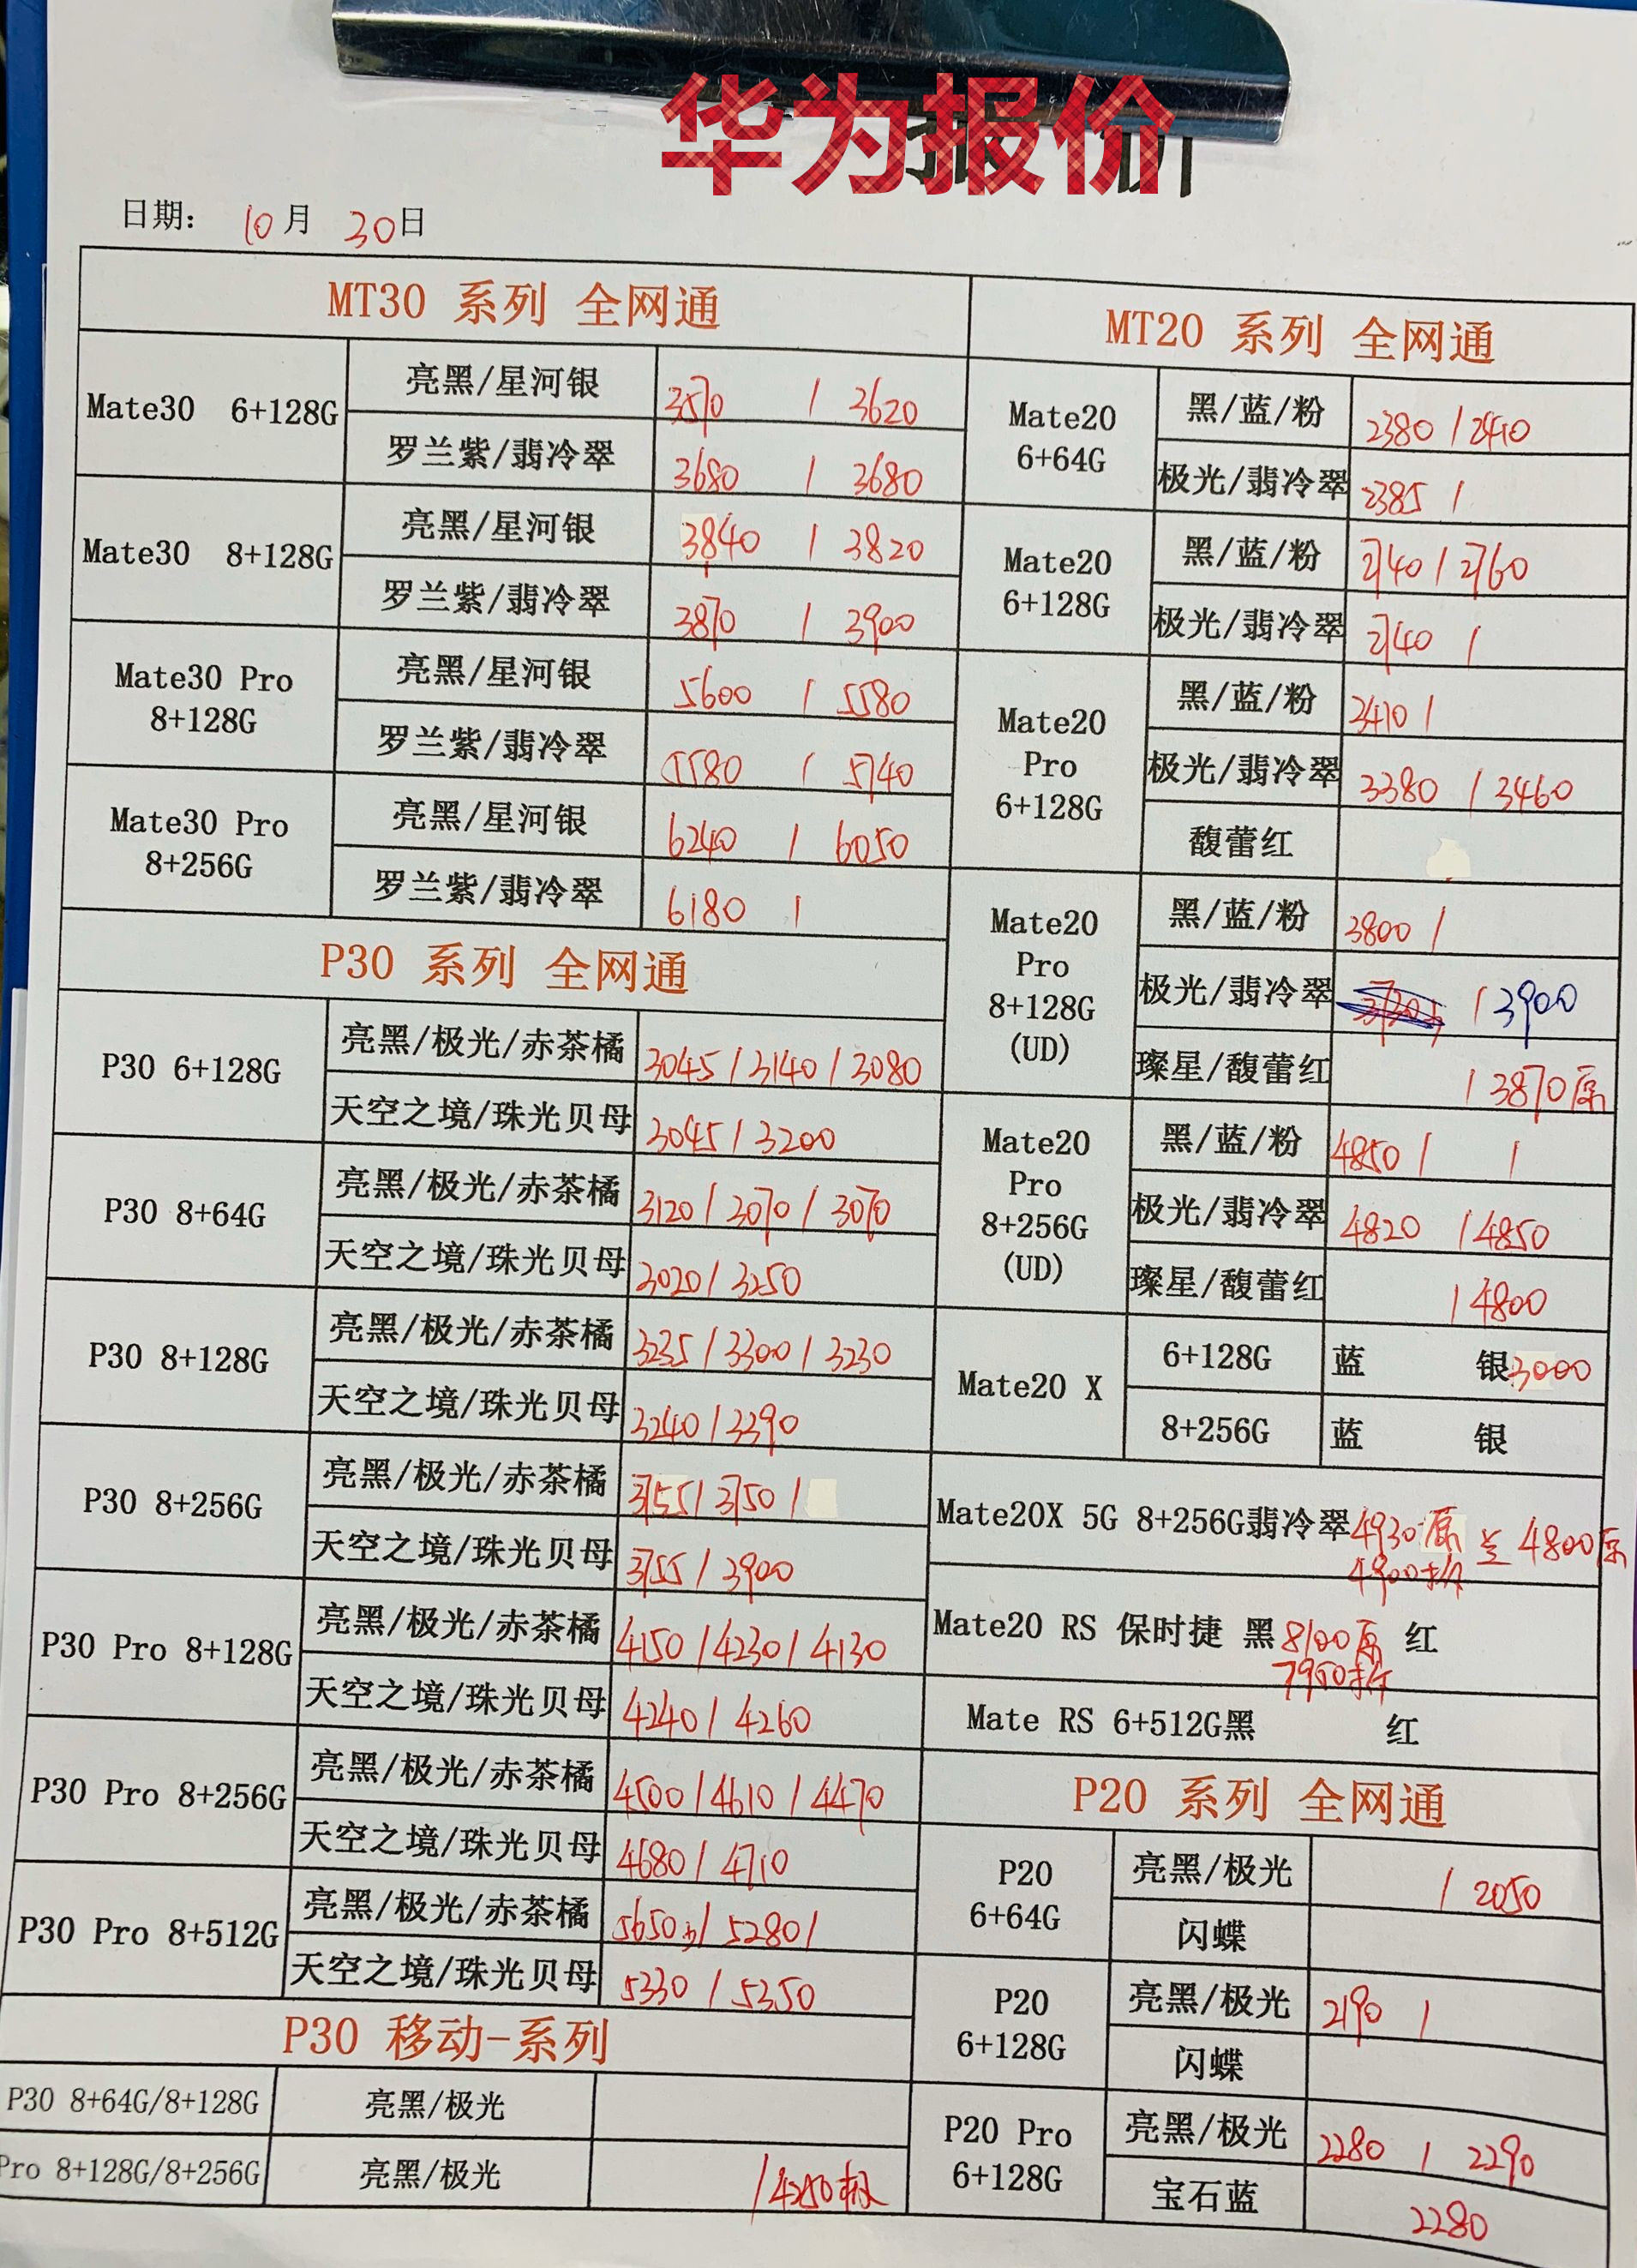 华为报价
日期： 10月 30日
MT30 系列 全网通
Mate30 6+128G
亮黑/星河银 3570 / 3620
罗兰紫/翡冷翠 3680 / 3680
Mate30 8+128G
亮黑/星河银 3840 / 3820
罗兰紫/翡冷翠 3870 / 3900
Mate30 Pro
8+128G
亮黑/星河银 5600 / 5580
罗兰紫/翡冷翠 5580 / 5740
Mate30 Pro
8+256G
亮黑/星河银 6240 / 6050
罗兰紫/翡冷翠 6180 /
P30 系列 全网通
P30 6+128G
亮黑/极光/赤茶橘 3045 / 3140 / 3080
天空之境/珠光贝母 3045 / 3200
P30 8+64G
亮黑/极光/赤茶橘 3120 / 3070 / 3070
天空之境/珠光贝母 3020 / 3250
P30 8+128G
亮黑/极光/赤茶橘 3235 / 3300 / 3230
天空之境/珠光贝母 3240 / 3390
P30 8+256G
亮黑/极光/赤茶橘 3755 / 3750 /
天空之境/珠光贝母 3755 / 3900
P30 Pro 8+128G
亮黑/极光/赤茶橘 4150 / 4230 / 4130
天空之境/珠光贝母 4240 / 4260
P30 Pro 8+256G
亮黑/极光/赤茶橘 4500 / 4610 / 4470
天空之境/珠光贝母 4680 / 4710
P30 Pro 8+512G
亮黑/极光/赤茶橘 5650 / 5280 /
天空之境/珠光贝母 5330 / 5350
P30 移动-系列
P30 8+64G/8+128G 亮黑/极光
Pro 8+128G/8+256G 亮黑/极光 / 4250
MT20 系列 全网通
Mate20
6+64G
黑/蓝/粉 2380 / 2410
极光/翡冷翠 2385 /
Mate20
6+128G
黑/蓝/粉 2740 / 2760
极光/翡冷翠 2740 /
Mate20
Pro
6+128G
黑/蓝/粉 3410 /
极光/翡冷翠 3380 / 3460
馥蕾红
Mate20
Pro
8+128G
(UD)
黑/蓝/粉 3800 /
极光/翡冷翠 / 3900
璨星/馥蕾红 / 3870原
Mate20
Pro
8+256G
(UD)
黑/蓝/粉 4850 / /
极光/翡冷翠 4820 / 4850
璨星/馥蕾红 / 4800
Mate20 X
6+128G 蓝 银3000
8+256G 蓝 银
Mate20X 5G 8+256G翡冷翠4930原 兰 4800原
4900拆
Mate20 RS 保时捷 黑8100原 红
7950拆
Mate RS 6+512G黑 红
P20 系列 全网通
P20
6+64G
亮黑/极光 / 2050
闪蝶
P20
6+128G
亮黑/极光 2190 /
闪蝶
P20 Pro
6+128G
亮黑/极光 2280 / 2290
宝石蓝 2280